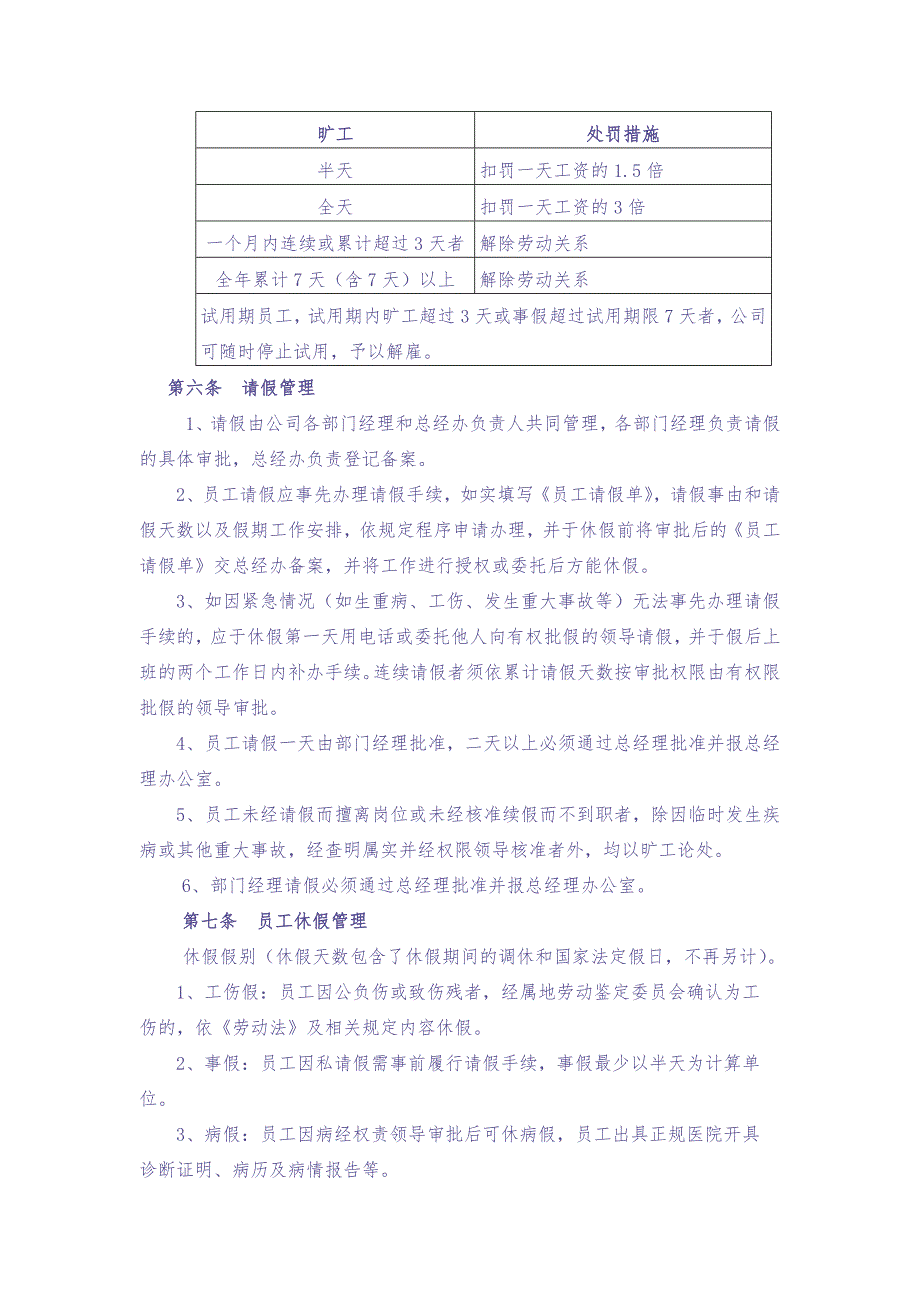 旷工 处罚措施
半天 扣罚一天工资的1.5倍
全天 扣罚一天工资的3倍
一个月内连续或累计超过3天者 解除劳动关系
全年累计7天（含7天）以上 解除劳动关系
试用期员工，试用期内旷工超过3天或事假超过试用期限7天者，公司
可随时停止试用，予以解雇。
第六条 请假管理
1、请假由公司各部门经理和总经办负责人共同管理，各部门经理负责请假
的具体审批，总经办负责登记备案。
2、员工请假应事先办理请假手续，如实填写《员工请假单》，请假事由和请
假天数以及假期工作安排，依规定程序申请办理，并于休假前将审批后的《员工
请假单》交总经办备案，并将工作进行授权或委托后方能休假。
3、如因紧急情况（如生重病、工伤、发生重大事故等）无法事先办理请假
手续的，应于休假第一天用电话或委托他人向有权批假的领导请假，并于假后上
班的两个工作日内补办手续。连续请假者须依累计请假天数按审批权限由有权限
批假的领导审批。
4、员工请假一天由部门经理批准，二天以上必须通过总经理批准并报总经
理办公室。
5、员工未经请假而擅离岗位或未经核准续假而不到职者，除因临时发生疾
病或其他重大事故，经查明属实并经权限领导核准者外，均以旷工论处。
6、部门经理请假必须通过总经理批准并报总经理办公室。
第七条 员工休假管理
休假假别（休假天数包含了休假期间的调休和国家法定假日，不再另计）。
1、工伤假：员工因公负伤或致伤残者，经属地劳动鉴定委员会确认为工
伤的，依《劳动法》及相关规定内容休假。
2、事假：员工因私请假需事前履行请假手续，事假最少以半天为计算单
位。
3、病假：员工因病经权责领导审批后可休病假，员工出具正规医院开具
诊断证明、病历及病情报告等。